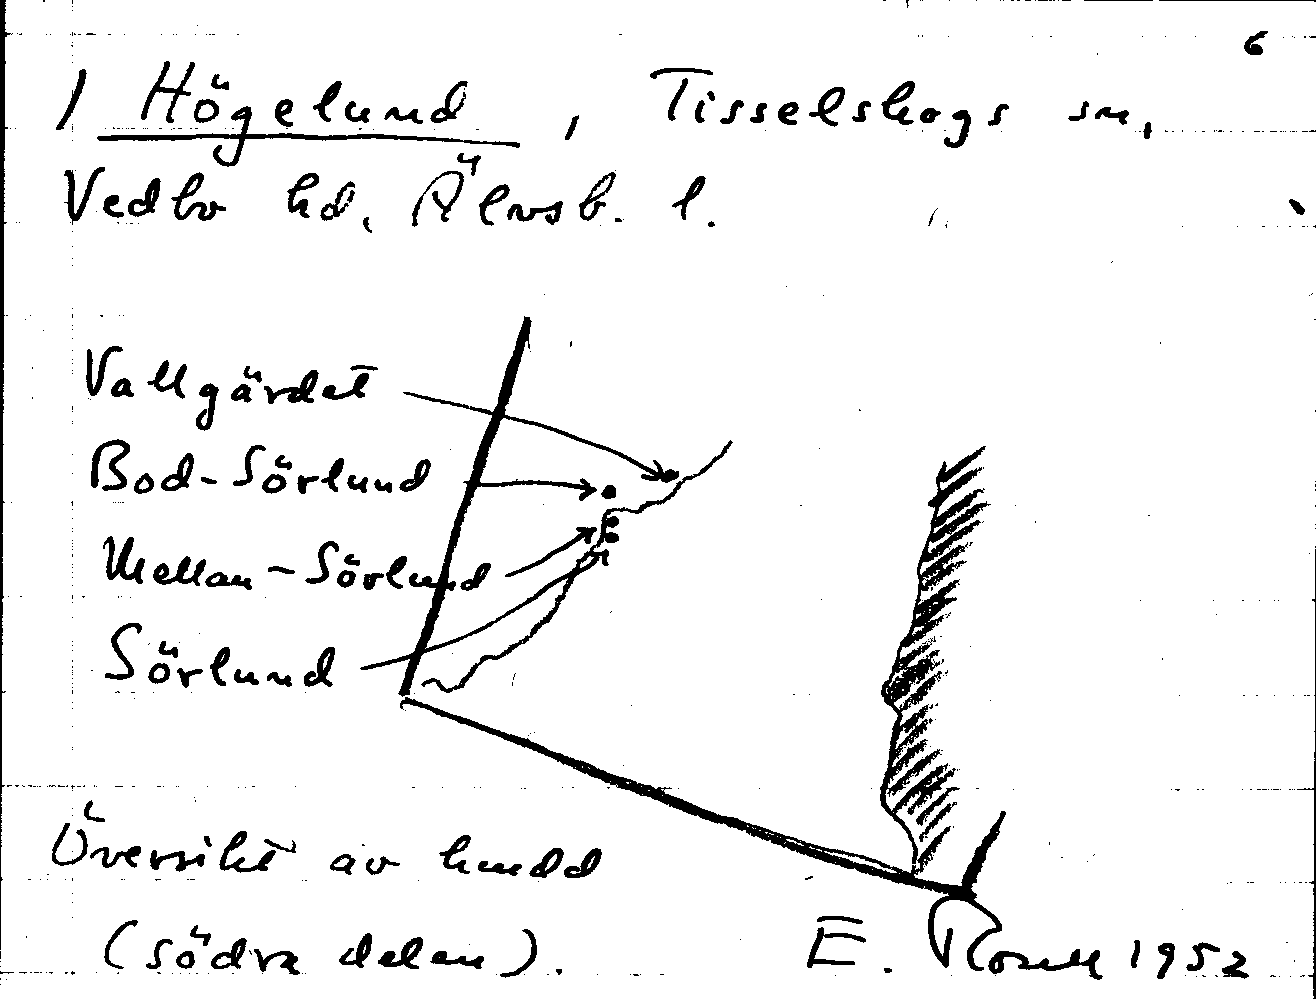 6
1 Högelund, Tisselskogs sn,
Vedbo hd, Älvsb. l.
Vallgärdet
Bod-Sörlund
Mellan-Sörlund
Sörlund
Översikt av hmdd
(södra delen).
E. Rosell 1952